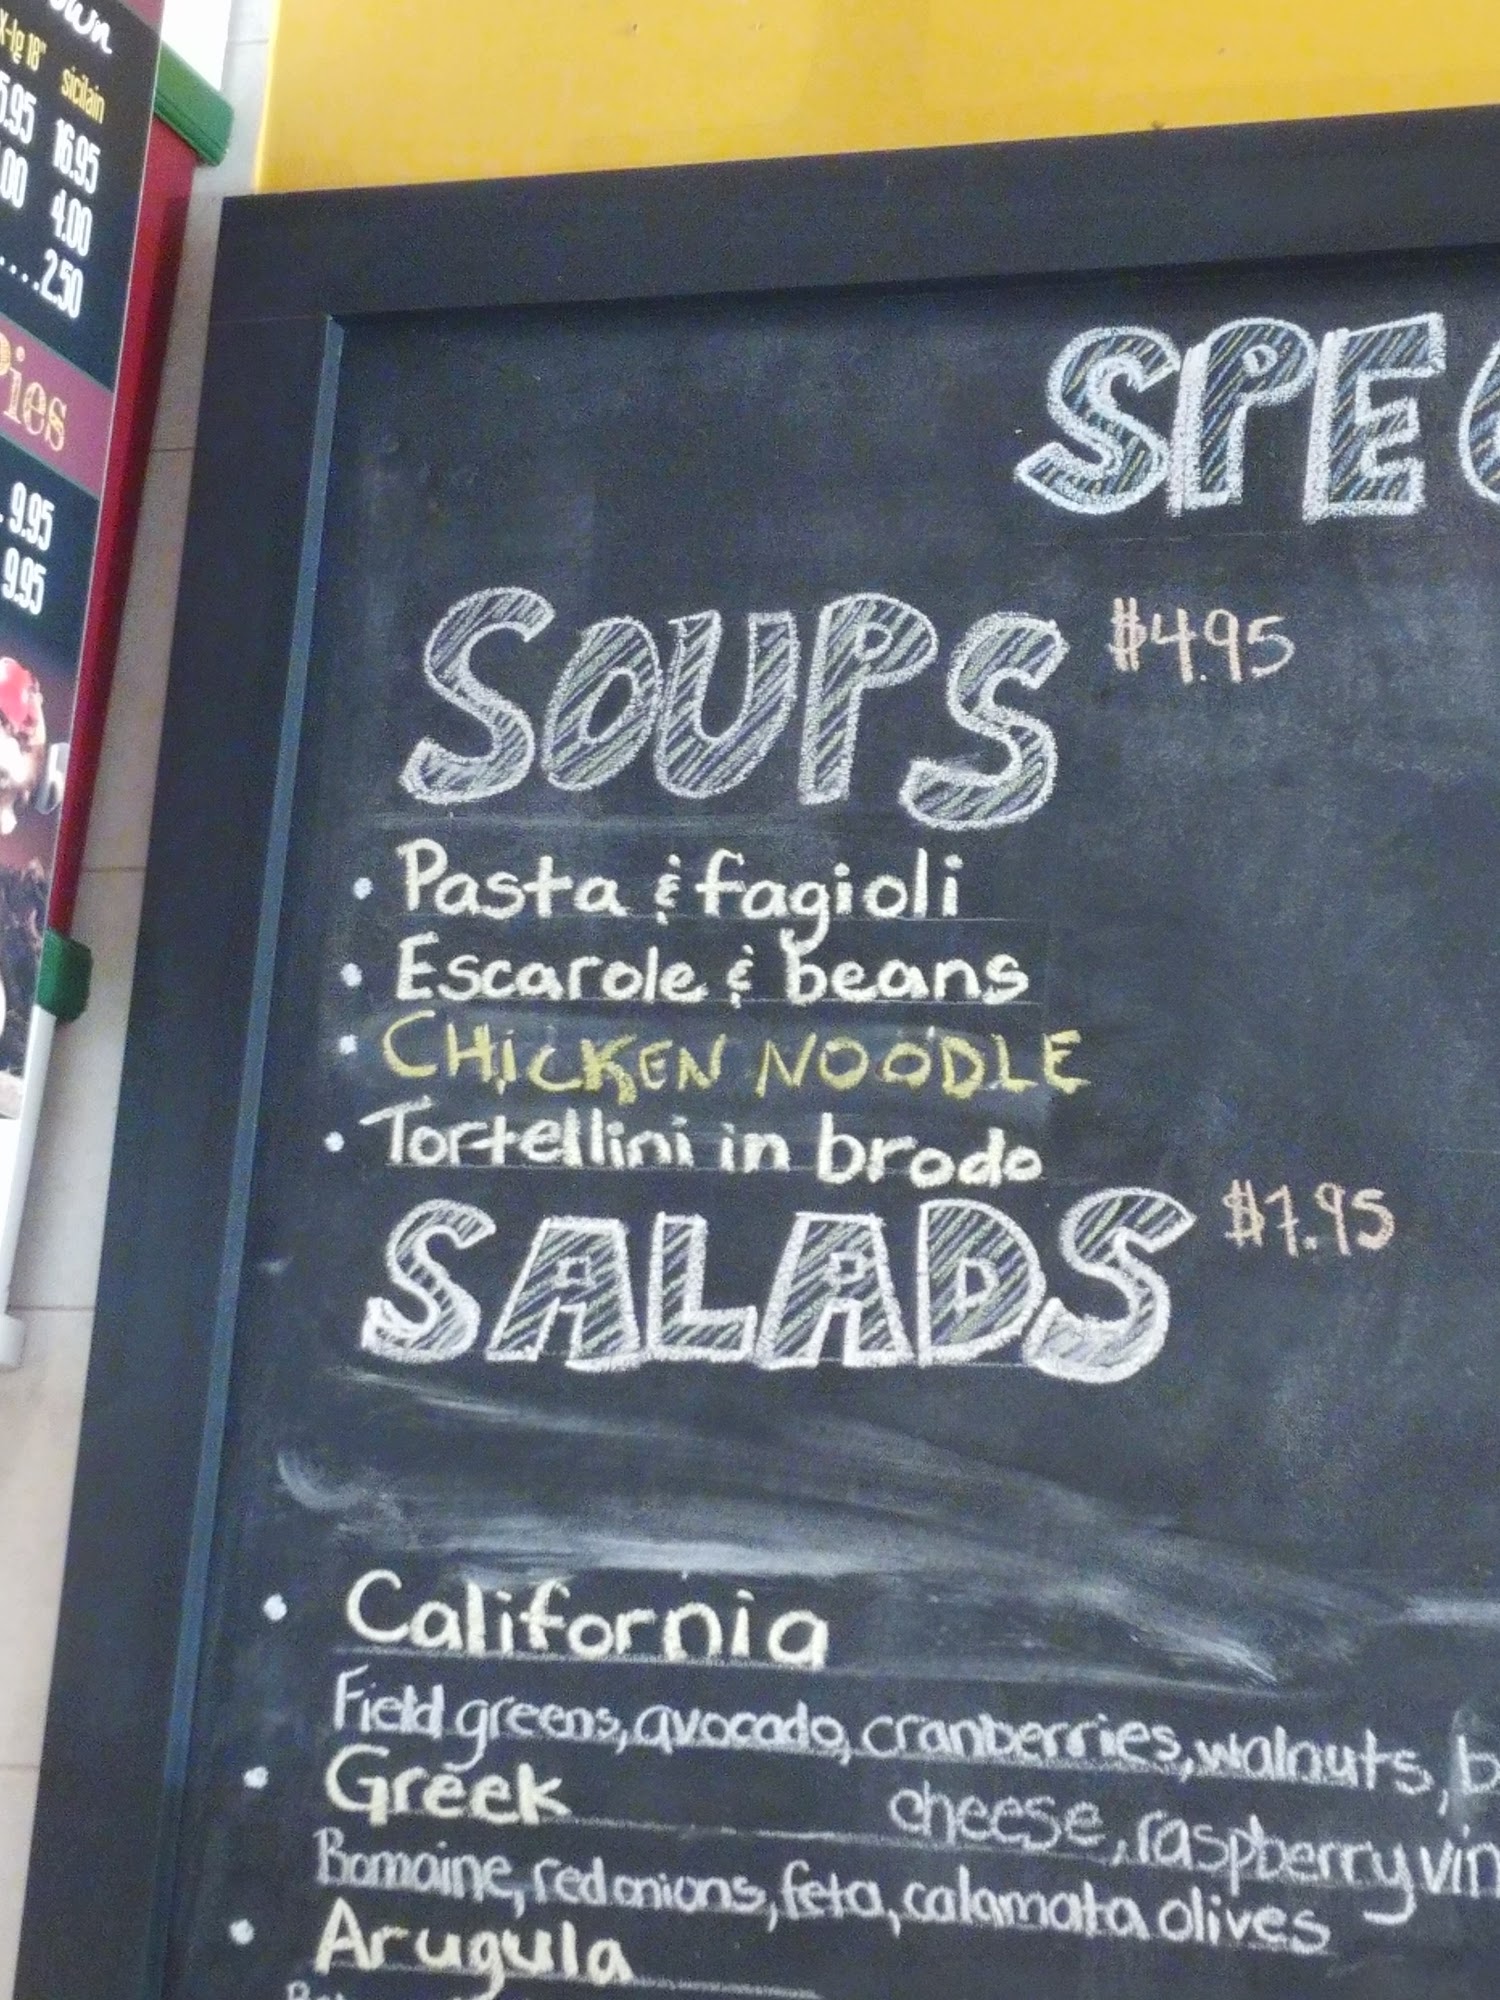 own
X-lg 18" sicilain
5.95 16.95
.00 4.00
....2.50
Pies
. 9.95
9.95
SPEC
SOUPS $4.95
• Pasta & fagioli
• Escarole & beans
• CHICKEN NOODLE
• Tortellini in brodo
SALADS $7.95
• California
Field greens, avocado, cranberries, walnuts, b
• Greek
cheese, raspberry vin
Bomaine, red onions, feta, calamata olives
• Arugula